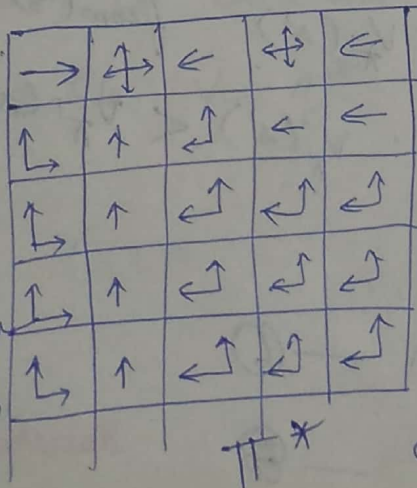 → ✥ ← ✥ ←
↑→ ↑ ←↑ ← ←
↑→ ↑ ←↑ ←↑ ←↑
↑→ ↑ ←↑ ←↑ ←↑
↑→ ↑ ←↑ ←↑ ←↑
π*